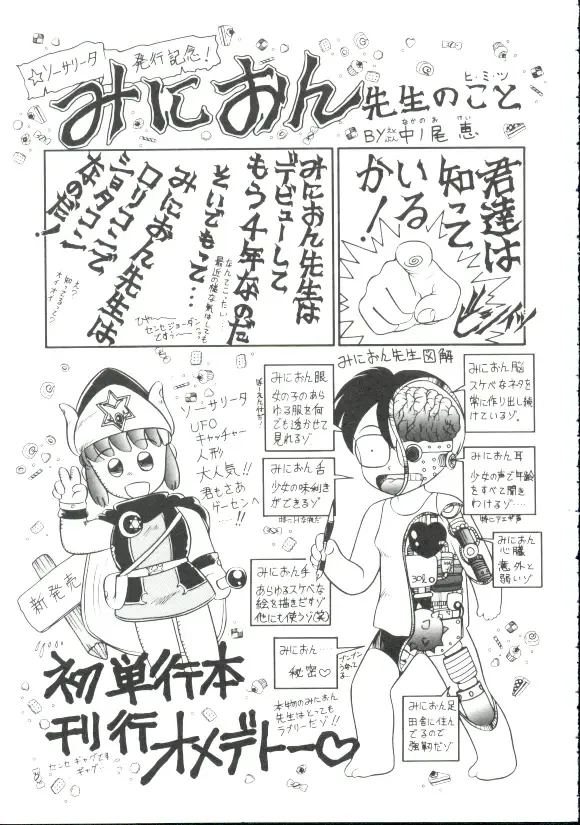 ☆ソーサリータ
発行記念！
みにおん先生のこと
ヒ・ミ・ツ
BY えぬぷん 中ノ尾 恵
なかのお けい
君達は
知って
いる
か！
ビシィッ
みにおん先生は
デビューして
もう4年なのだ
そいでもって…
なんてこったい…
最近の様な気はしても
みにおん先生は
ロリコンで
ショタコン
なのだ！
ひや〜〜
センセジョーダン
ですぅ〜〜
えっ
知ってるっっ
オイオイ
みにおん先生図解
みにおん脳
スケベなネタを
常に作り出し続
けているゾ。
みにおん眼
女の子のあら
ゆる服を何
でも透かせて
見れるゾ
みにおん耳
少女の声で年齢
をすべて聞き
わけるゾ…
特にアエギ声
みにおん舌
少女の味利き
ができるゾ
みにおん
心臓
意外と
弱いゾ
30ℓ
みにおん手
あらゆるスケベな
絵を描きだすゾ
他にも使うゾ(笑)
みにおん…
秘密♡
みにおん足
田舎に住ん
でるので
強靭だゾ
本物のみにおん
先生はとっても
ラブリーだゾ!!
ソーサリータ
UFO
キャッチャー
人形
大人気!!
君もさあ
ゲーセンへ
…!!
新発売
初単行本
刊行オメデトー♡
センセギャグです
ギャグ…